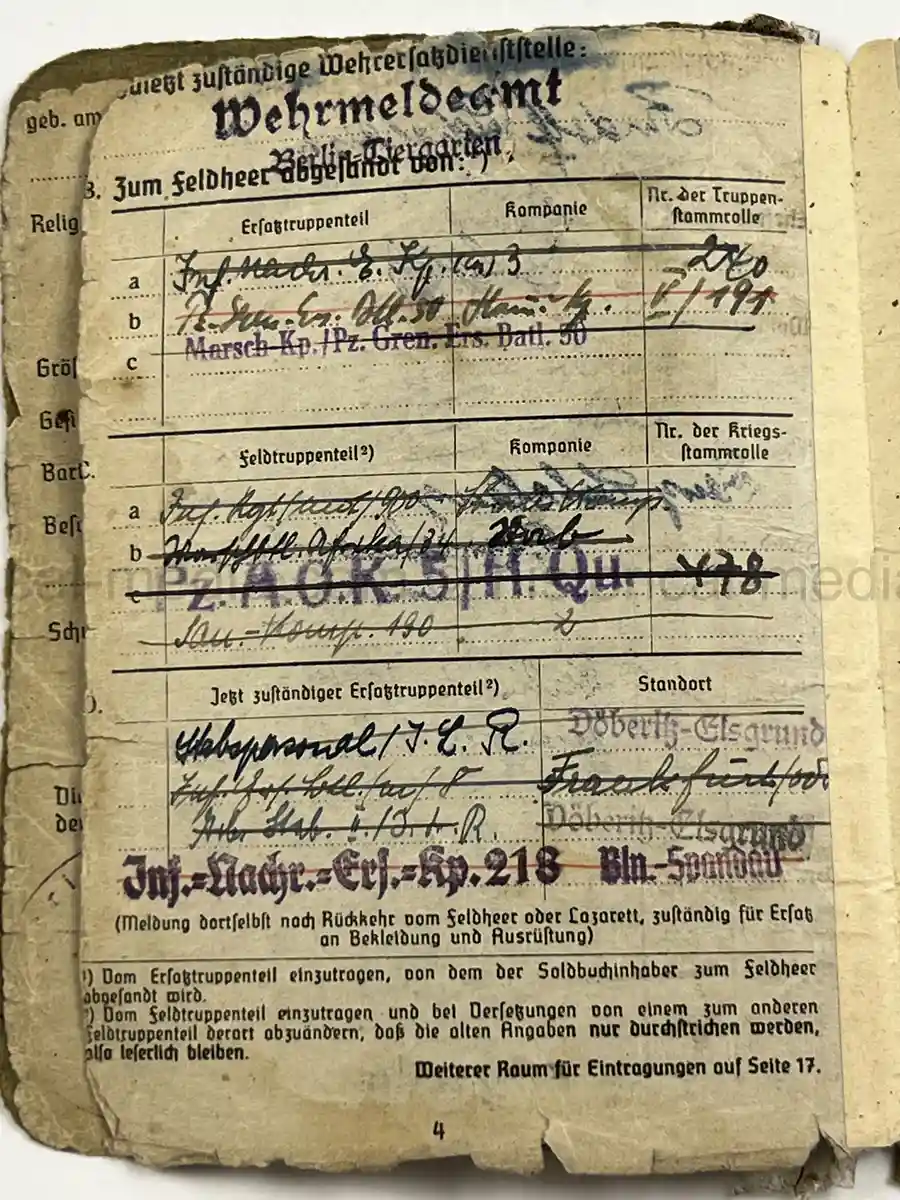 zuletzt zuständige Wehrersatzdienststelle:
Wehrmeldeamt
Berlin-Tiergarten
geb. am
B. Zum Feldheer abgesandt von: ¹)
Relig
Ersatztruppenteil Kompanie Nr. der Truppen-
stammrolle
a Inf. Nachr. E. Kp. (m) 3 240
b Pz. Gren. Ers. Btl. 50 Stam. Kp. V/191
c Marsch-Kp./Pz. Gren. Ers. Batl. 50
Grö
C. Feldtruppenteil²) Kompanie Nr. der Kriegs-
stammrolle
Bar
a Inf. Rgt. 900 Stabs Komp.
Bes
b Afrika
c Pz. A.O.K. 5/H. Qu. 478
Sch
San.-Komp. 190 2
D. Jetzt zuständiger Ersatztruppenteil²) Standort
Stabspersonal/J. L. R. Döberitz-Elsgrund
Inf. Ers. Btl. 8 Frankfurt/od
Stab. II. R. Döberitz-Elsgrund
Inf.-Nachr.-Ers.-Kp. 218 Bln.-Spandau
(Meldung dortselbst nach Rückkehr vom Feldheer oder Lazarett, zuständig für Ersatz
an Bekleidung und Ausrüstung)
¹) Vom Ersatztruppenteil einzutragen, von dem der Soldbuchinhaber zum Feldheer
abgesandt wird.
²) Vom Feldtruppenteil einzutragen und bei Versetzungen von einem zum anderen
Feldtruppenteil derart abzuändern, daß die alten Angaben nur durchstrichen werden,
also leserlich bleiben.
Weiterer Raum für Eintragungen auf Seite 17.
4